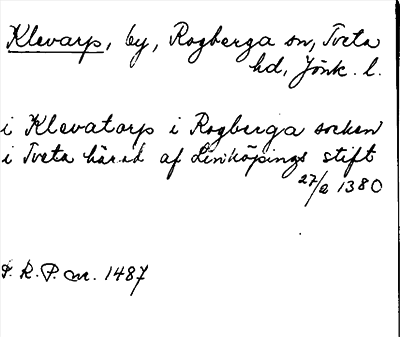 Klevarp, by, Rogberga sn, Tveta
hd, Jönk. l.
i Klevatorp i Rogberga socken
i Tveta härad af Linköpings stift
27/2 1380
S. R. P. nr. 1487